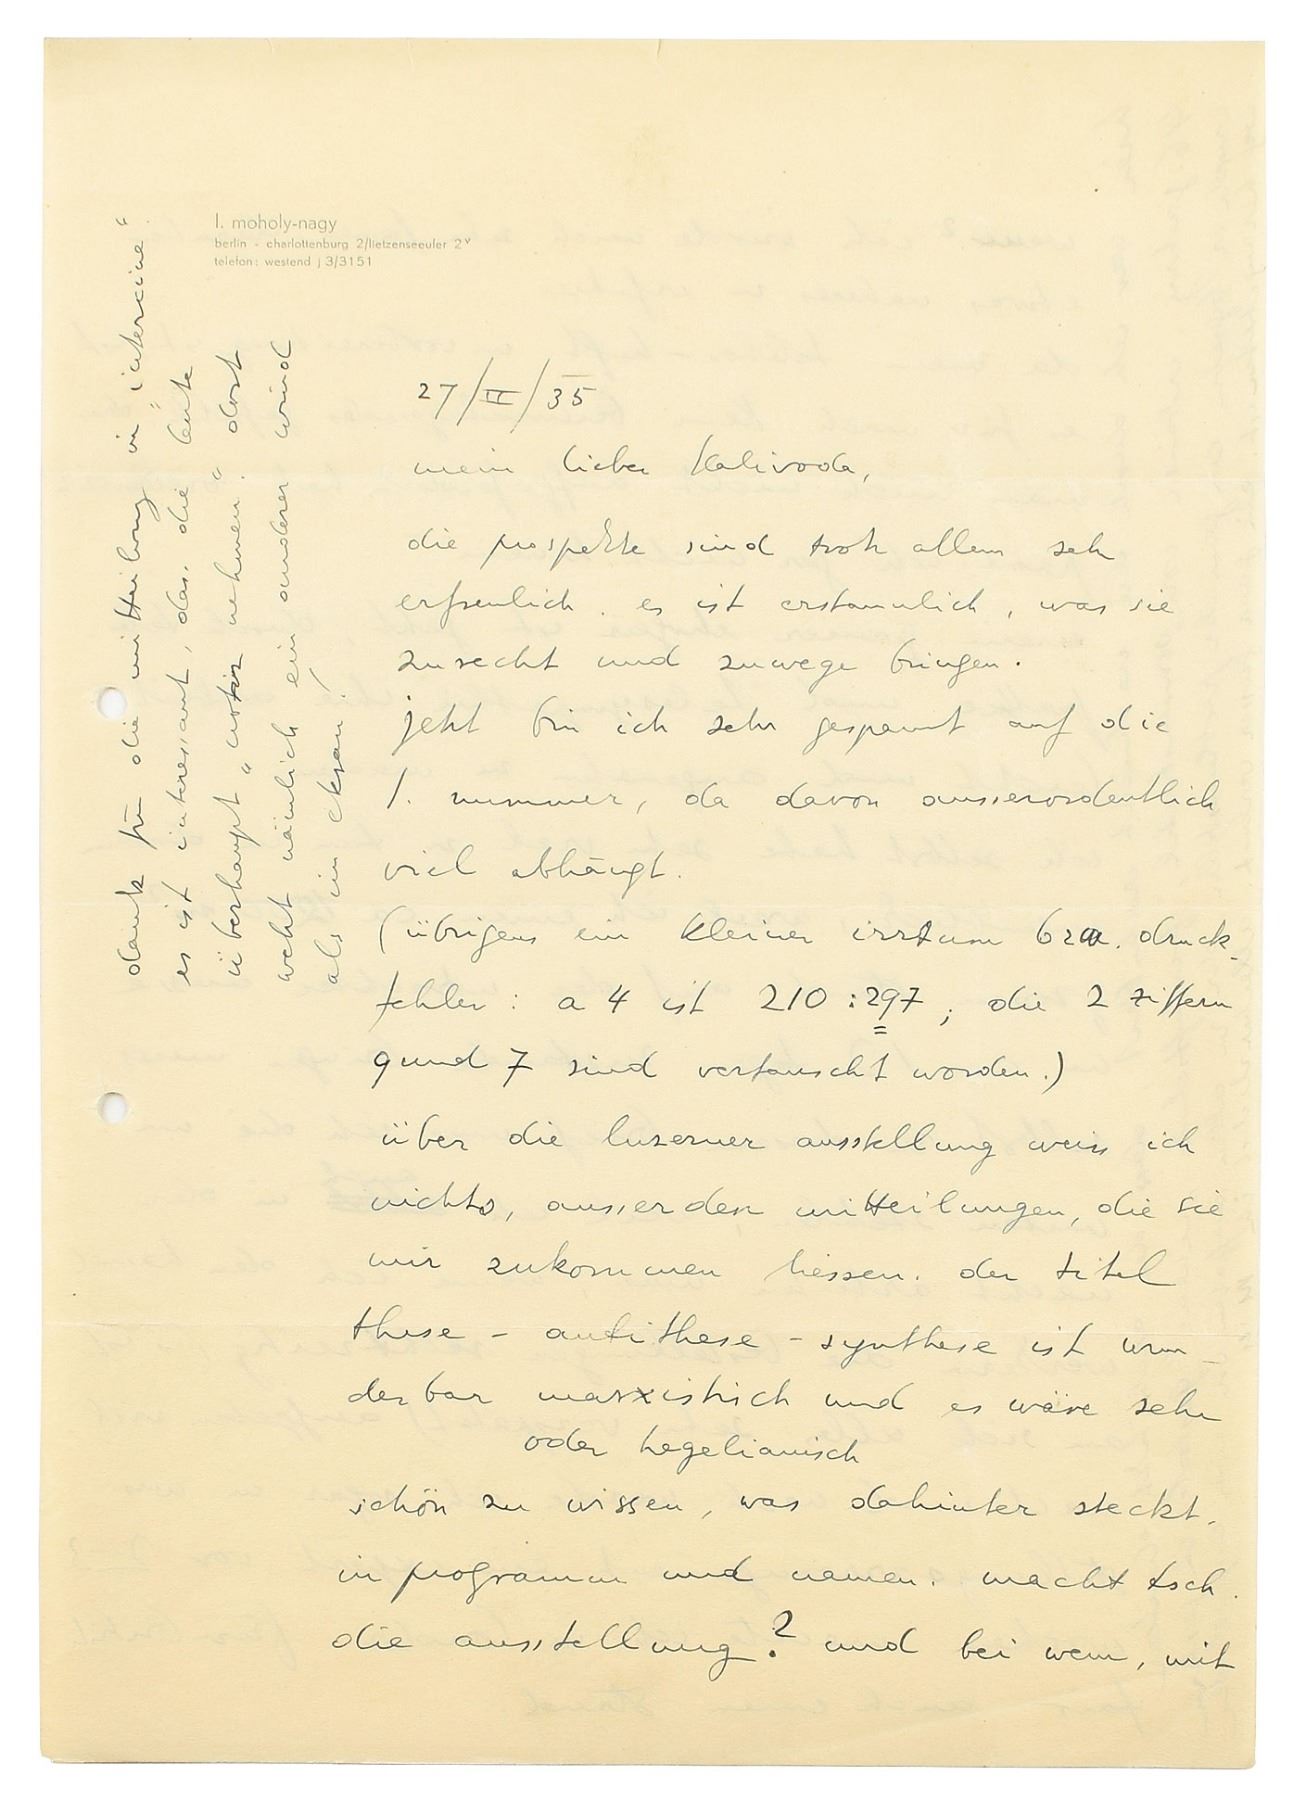 l. moholy-nagy
berlin - charlottenburg 2/lietzenseeufer 2ᵛ
telefon: westend j 3/3151
27/II/35
mein lieber Kalivoda,
die prospekte sind trotz allem sehr
erfreulich. es ist erstaunlich, was sie
zurecht und zuwege bringen.
jetzt bin ich sehr gespannt auf die
1. nummer, da davon ausserordentlich
viel abhängt.
(übrigens ein kleiner irrtum bzw. druck-
fehler: a 4 ist 210:297, die 2 ziffern
9 und 7 sind vertauscht worden.)
über die luzerner ausstellung weiss ich
nichts, ausser den mitteilungen, die sie
mir zukommen liessen. der titel
these - antithese - synthese ist wun-
derbar marxistisch und es wäre sehr
oder hegelianisch
schön zu wissen, was dahinter steckt,
in programm und namen. macht tsch.
die ausstellung? und bei wem, mit
dank für die mitteilung in "intereine"
es ist interessant, dass die leute
überhaupt "notiz nehmen". dort
weht nämlich ein anderer wind
als in eksan!